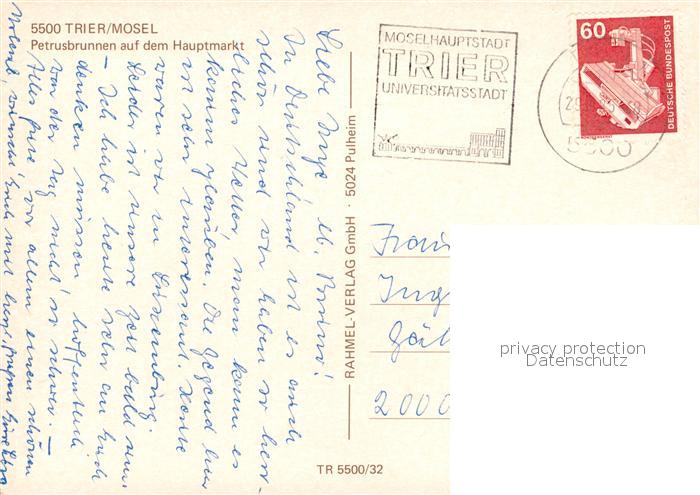 5500 TRIER/MOSEL
Petrusbrunnen auf dem Hauptmarkt
MOSELHAUPTSTADT
TRIER
UNIVERSITÄTSSTADT
60
DEUTSCHE BUNDESPOST
5500
RAHMEL-VERLAG GmbH · 5024 Pulheim
Liebe Inge
In Deutschland ist es auch
schön und wir haben so herr-
liches Wetter, man kann es
kaum glauben. Die Gegend hier
ist sehr interessant. Heute
waren wir in Luxemburg.
Leider ist unsere Zeit bald um
– Ich habe heute sehr an Euch
denken müssen hoffentlich
war der Tag nicht so schwer. –
Alles Gute vor allem einen schönen
Frau
Ing
2000
privacy protection
Datenschutz
TR 5500/32